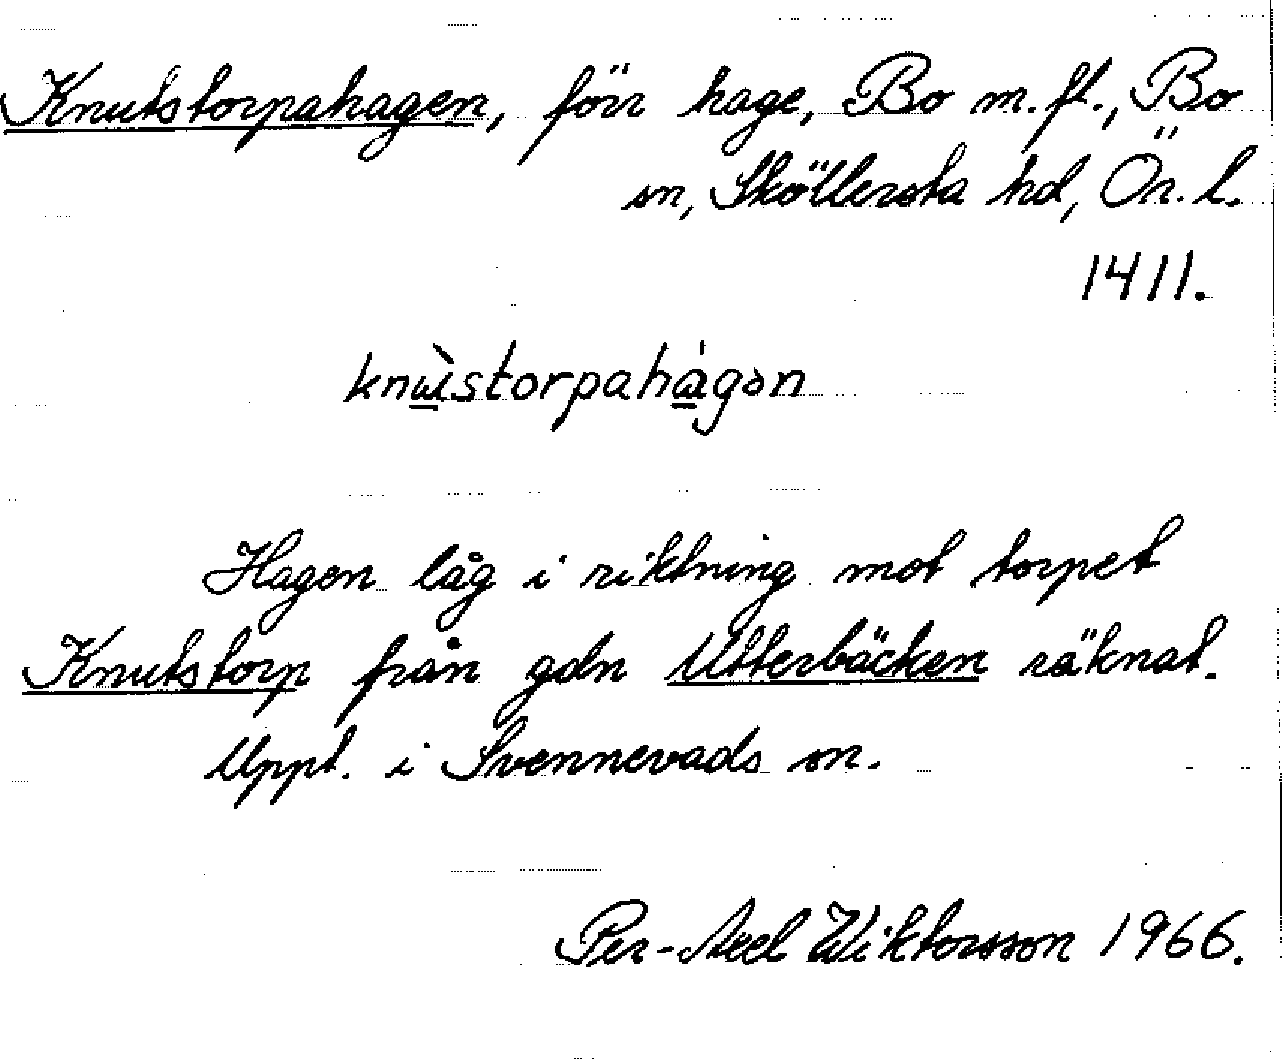 Knutstorpahagen, förr hage, Bo m.fl., Bo
sn, Sköllersta hd, Ör. l.
1411.
knu̲̇̀storpahȧ̲gən
Hagen låg i riktning mot torpet
Knutstorp från gdn Utterbäcken räknat.
Uppt. i Svennevads sn.
Per-Axel Wiktorsson 1966.